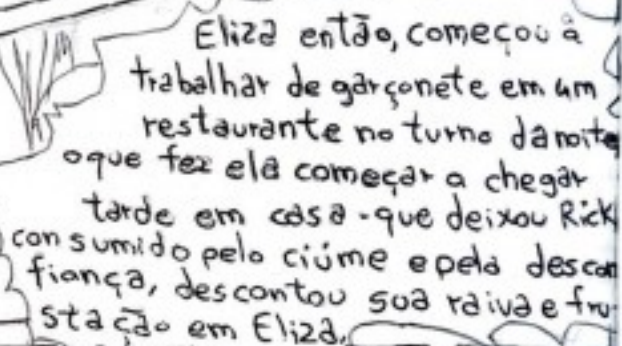 Eliza então, começou à
trabalhar de garçonete em um
restaurante no turno danoite
oque fez ela começar a chegar
tarde em casa - que deixou Rick
consumido pelo ciúme epela descon
fiança, descontou sua raiva e fru-
stação em Eliza.